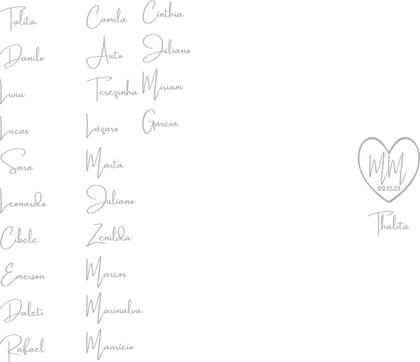 Talita
Danilo
Livia
Lucas
Sara
Leonardo
Cibele
Emerson
Daleti
Rafael
Camila
Auto
Terezinha
Lázaro
Marta
Juliano
Zenilda
Marcos
Marinalva
Maurício
Cinthia
Juliano
Miriam
Garcia
MM
09.12.23
Thalita